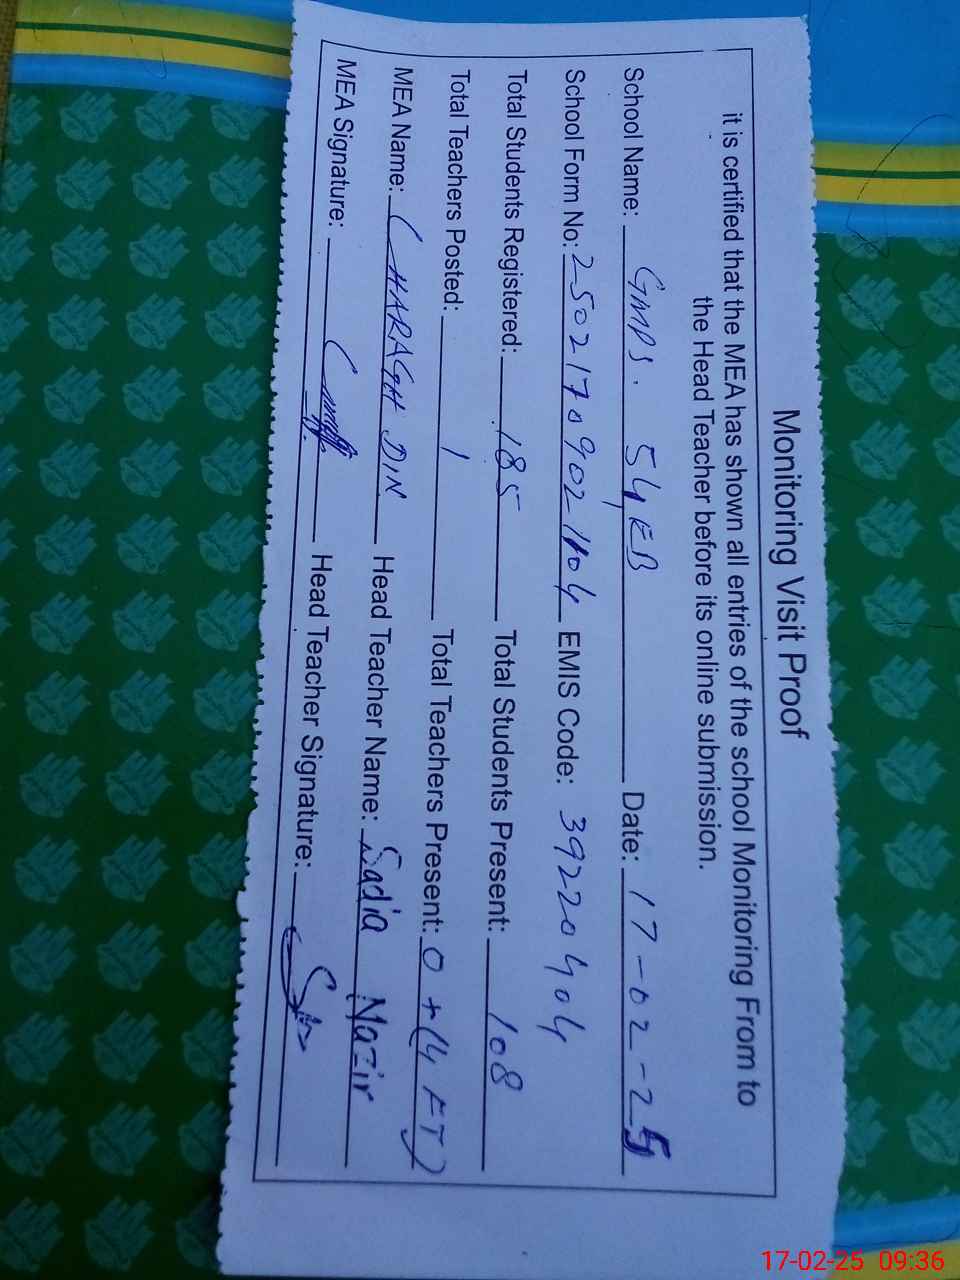 Monitoring Visit Proof
it is certified that the MEA has shown all entries of the school Monitoring From to
the Head Teacher before its online submission.
School Name: GMPS. 54EB Date: 17-02-25
School Form No: 2502170902 1104 EMIS Code: 39220404
Total Students Registered: 185 Total Students Present: 108
Total Teachers Posted: 1 Total Teachers Present: 0+(4 FT)
MEA Name: CHARAGH DIN Head Teacher Name: Sadia Nazir
MEA Signature: Head Teacher Signature:
17-02-25 09:36